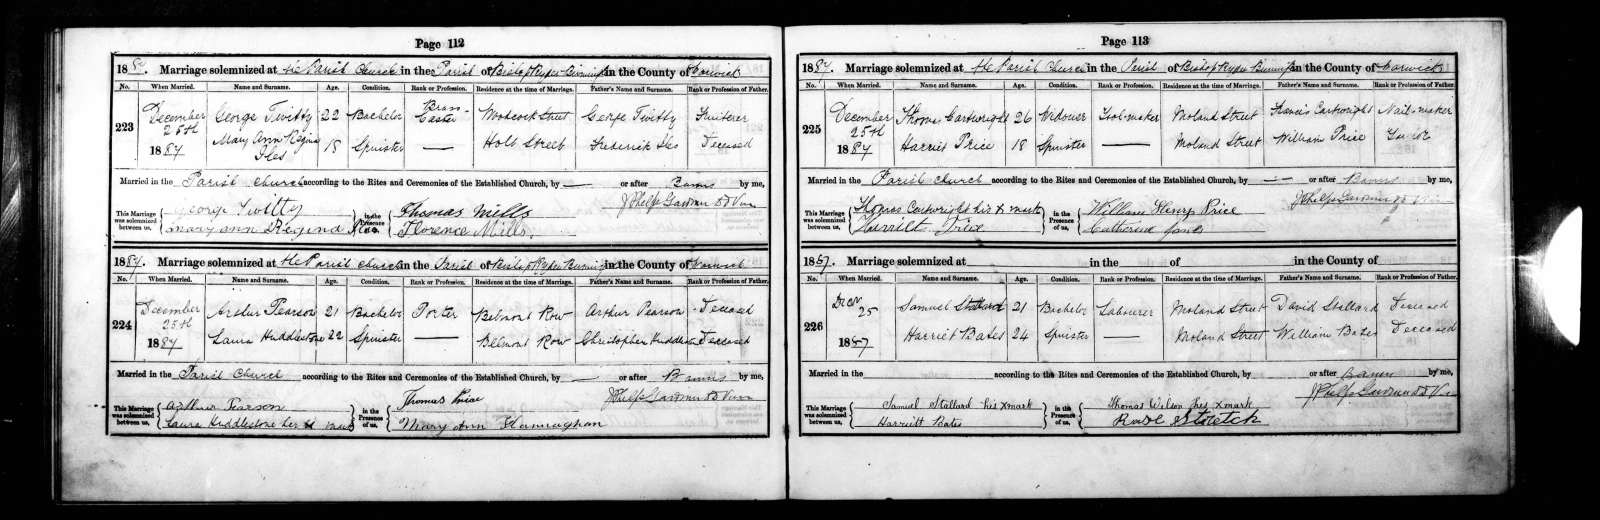 Page 112
1887. Marriage solemnized at the Parish Church in the Parish of Bishop Ryder Birmingham in the County of Warwick
No. When Married. Name and Surname. Age. Condition. Rank or Profession. Residence at the time of Marriage. Father's Name and Surname. Rank or Profession of Father.
223 December 25th 1887 George Twitty 22 Bachelor Brass Caster Woodcock Street George Twitty Fruiterer
Mary Ann Regina Iles 18 Spinster — Holt Street Frederick Iles Deceased
Married in the Parish Church according to the Rites and Ceremonies of the Established Church, by — or after Banns by me,
J Phelps Gardiner DD Vicar
This Marriage was solemnized between us, George Twitty in the Presence of us, Thomas Mills
Mary Ann Regina Iles Florence Mills.
1887. Marriage solemnized at the Parish Church in the Parish of Bishop Ryder Birmingham in the County of Warwick
No. When Married. Name and Surname. Age. Condition. Rank or Profession. Residence at the time of Marriage. Father's Name and Surname. Rank or Profession of Father.
224 December 25th 1887 Arthur Pearson 21 Bachelor Porter Belmont Row Arthur Pearson Deceased
Laura Huddlestone 22 Spinster — Belmont Row Christopher Huddlestone Deceased
Married in the Parish Church according to the Rites and Ceremonies of the Established Church, by — or after Banns by me,
J Phelps Gardiner DD Vicar
This Marriage was solemnized between us, Arthur Pearson in the Presence of us, Thomas Price
Laura Huddlestone her X mark Mary Ann Hannaghan
Page 113
1887. Marriage solemnized at the Parish Church in the Parish of Bishop Ryder Birmingham in the County of Warwick
No. When Married. Name and Surname. Age. Condition. Rank or Profession. Residence at the time of Marriage. Father's Name and Surname. Rank or Profession of Father.
225 December 25th 1887 Thomas Cartwright 26 Widower Tool-maker Moland Street Francis Cartwright Nail-maker
Harriet Price 18 Spinster — Moland Street William Price
Married in the Parish Church according to the Rites and Ceremonies of the Established Church, by — or after Banns by me,
J Phelps Gardiner DD Vicar
This Marriage was solemnized between us, Thomas Cartwright his X mark in the Presence of us, William Henry Price
Harriet Price Catherine Jones
1887. Marriage solemnized at in the of in the County of
No. When Married. Name and Surname. Age. Condition. Rank or Profession. Residence at the time of Marriage. Father's Name and Surname. Rank or Profession of Father.
226 Decr 25 1887 Samuel Stallard 21 Bachelor Labourer Moland Street David Stallard Deceased
Harriet Bates 24 Spinster — Moland Street William Bates Deceased
Married in the according to the Rites and Ceremonies of the Established Church, by or after Banns by me,
J Phelps Gardiner DD Vicar
This Marriage was solemnized between us, Samuel Stallard his X mark in the Presence of us, Thomas Wilson his X mark
Harriett Bates Rose Stretch